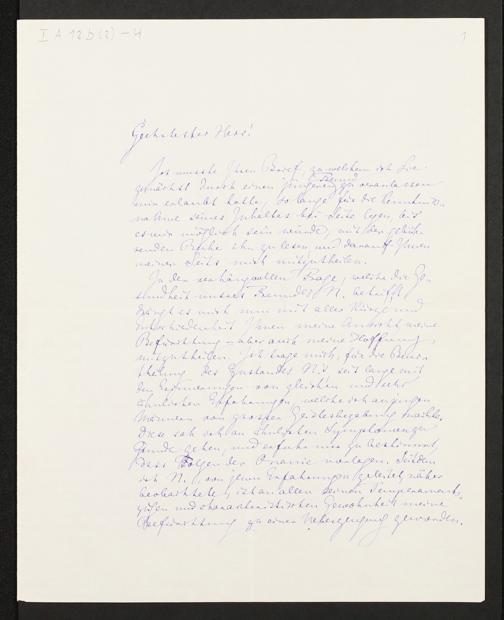 I A 12 b (2) - 4
1
Geehrtester Herr!
Ich musste Ihren Brief, zu welchem ich Sie
zunächst durch einen jüngeren Freund zu veranlassen
mir erlaubt hatte, so lange für die Kenntniss-
nahme seines Inhaltes bei Seite legen, bis
es mir möglich sein würde, mit der gebüh-
renden Ruhe ihn zu lesen, und darauf Ihnen
meiner Seits mich mitzutheilen.
In der verhängnisvollen Frage, welche die Ge-
sundheit unseres Freundes N. betrifft,
drängt es mich nun mit aller Kürze und
Entschiedenheit Ihnen meine Ansicht, meine
Befürchtung – aber auch meine Hoffnung,
mitzutheilen. Ich trage mich, für die Beur-
theilung des Zustandes N.'s seit lange mit
den Erinnerungen von gleichen und sehr
ähnlichen Erfahrungen, welche ich an jungen
Männern von grosser Geistesbegabung machte.
Diese sah ich an ähnlichen Symptomen zu
Grunde gehen, und erfuhr nur zu bestimmt,
dass Folgen der Onanie vorlagen. Seitdem
ich N., von jenen Erfahrungen geleitet, näher
beobachtete, ist an allen seinen Temperaments-
zügen und charakteristischen Gewohnheit meine
Befürchtung zu einer Ueberzeugung geworden.